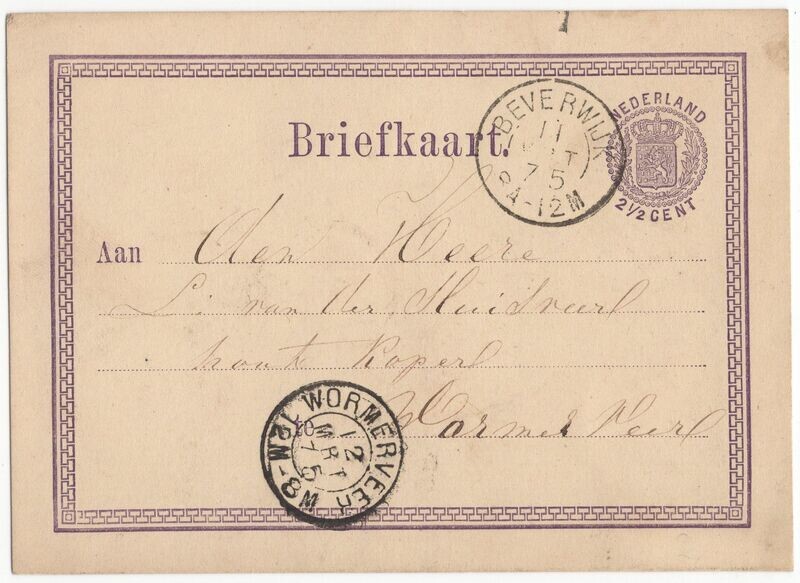 NEDERLAND
2½ CENT
BEVERWIJK
11
MRT
75
9A-12M
Briefkaart.
Aan Den Heere
L. van der
hout Koper
Wormerveer
WORMERVEER
12
MRT
75
8M-12M